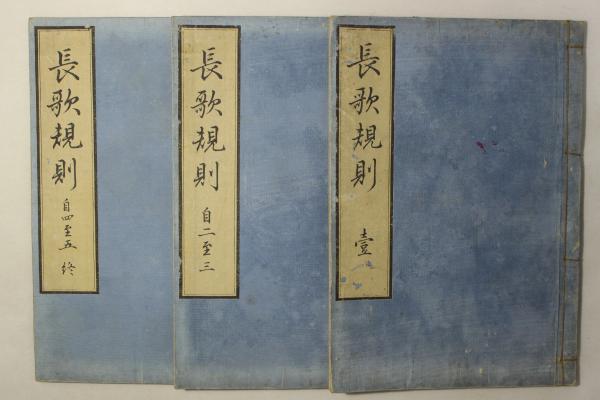 長歌規則
壹
長歌規則
自二至三
長歌規則
自四至五 終